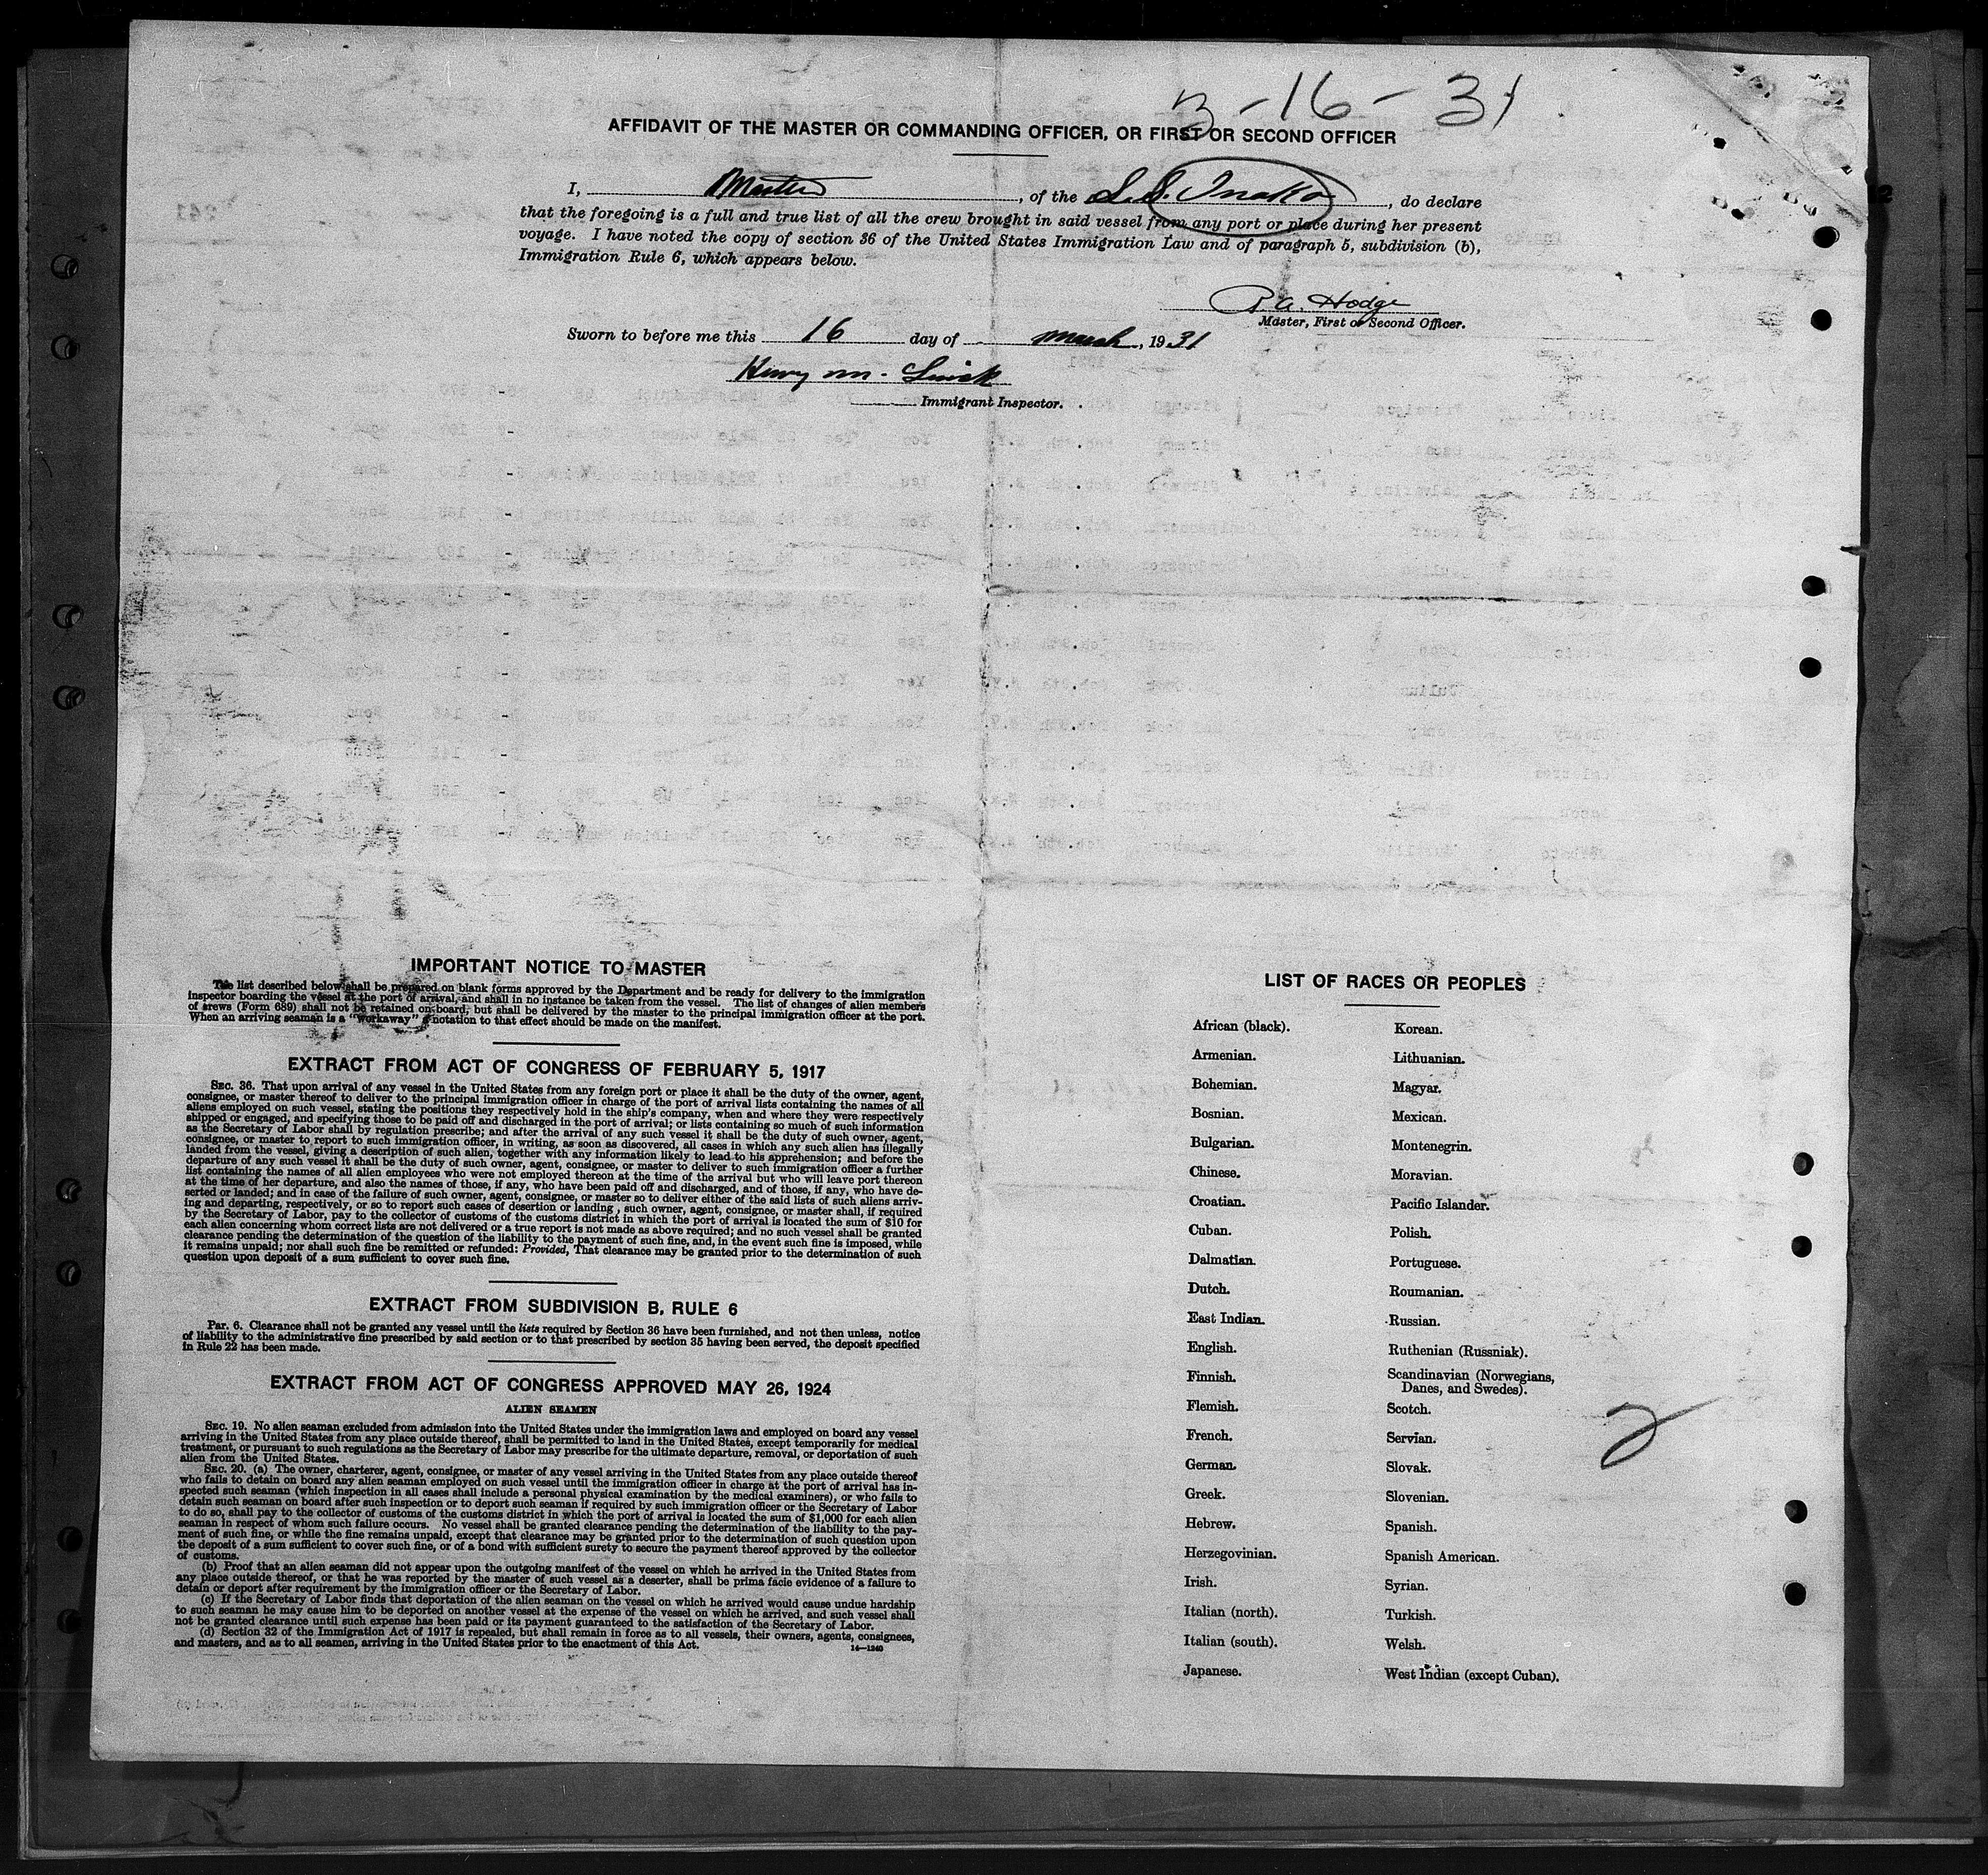 3-16-31
AFFIDAVIT OF THE MASTER OR COMMANDING OFFICER, OR FIRST OR SECOND OFFICER
I, Master, of the S.S. Inako, do declare
that the foregoing is a full and true list of all the crew brought in said vessel from any port or place during her present
voyage. I have noted the copy of section 36 of the United States Immigration Law and of paragraph 5, subdivision (b),
Immigration Rule 6, which appears below.
A. Hodge
Master, First or Second Officer.
Sworn to before me this 16 day of March, 1931
Henry M.
Immigrant Inspector.
IMPORTANT NOTICE TO MASTER
The list described below shall be prepared on blank forms approved by the Department and be ready for delivery to the immigration
inspector boarding the vessel at the port of arrival, and shall in no instance be taken from the vessel. The list of changes of alien members
of crews (Form 689) shall not be retained on board, but shall be delivered by the master to the principal immigration officer at the port.
When an arriving seaman is a "workaway" a notation to that effect should be made on the manifest.
EXTRACT FROM ACT OF CONGRESS OF FEBRUARY 5, 1917
SEC. 36. That upon arrival of any vessel in the United States from any foreign port or place it shall be the duty of the owner, agent,
consignee, or master thereof to deliver to the principal immigration officer in charge of the port of arrival lists containing the names of all
aliens employed on such vessel, stating the positions they respectively hold in the ship's company, when and where they were respectively
shipped or engaged, and specifying those to be paid off and discharged in the port of arrival; or lists containing so much of such information
as the Secretary of Labor shall by regulation prescribe; and after the arrival of any such vessel it shall be the duty of such owner, agent,
consignee, or master to report to such immigration officer, in writing, as soon as discovered, all cases in which any such alien has illegally
landed from the vessel, giving a description of such alien, together with any information likely to lead to his apprehension; and before the
departure of any such vessel it shall be the duty of such owner, agent, consignee, or master to deliver to such immigration officer a further
list containing the names of all alien employees who were not employed thereon at the time of the arrival but who will leave port thereon
at the time of her departure, and also the names of those, if any, who have been paid off and discharged, and of those, if any, who have de-
serted or landed; and in case of the failure of such owner, agent, consignee, or master so to deliver either of the said lists of such aliens arriv-
ing and departing, respectively, or so to report such cases of desertion or landing, such owner, agent, consignee, or master, shall, if required
by the Secretary of Labor, pay to the collector of customs of the customs district in which the port of arrival is located the sum of $10 for
each alien concerning whom correct lists are not delivered or a true report is not made as above required; and no such vessel shall be granted
clearance pending the determination of the question of the liability to the payment of such fine, and, in the event such fine is imposed, while
it remains unpaid; nor shall such fine be remitted or refunded: Provided, That clearance may be granted prior to the determination of such
question upon deposit of a sum sufficient to cover such fine.
EXTRACT FROM SUBDIVISION B, RULE 6
Par. 6. Clearance shall not be granted any vessel until the lists required by Section 36 have been furnished, and not then unless, notice
of liability to the administrative fine prescribed by said section or to that prescribed by section 35 having been served, the deposit specified
in Rule 22 has been made.
EXTRACT FROM ACT OF CONGRESS APPROVED MAY 26, 1924
ALIEN SEAMEN
SEC. 19. No alien seaman excluded from admission into the United States under the immigration laws and employed on board any vessel
arriving in the United States from any place outside thereof, shall be permitted to land in the United States, except temporarily for medical
treatment, or pursuant to such regulations as the Secretary of Labor may prescribe for the ultimate departure, removal, or deportation of such
alien from the United States.
SEC. 20. (a) The owner, charterer, agent, consignee, or master of any vessel arriving in the United States from any place outside thereof
who fails to detain on board any alien seaman employed on such vessel until the immigration officer in charge at the port of arrival has in-
spected such seaman (which inspection in all cases shall include a personal physical examination by the medical examiners), or who fails to
detain such seaman on board after such inspection or to deport such seaman if required by such immigration officer or the Secretary of Labor
to do so, shall pay to the collector of customs of the customs district in which the port of arrival is located the sum of $1,000 for each alien
seaman in respect of whom such failure occurs. No vessel shall be granted clearance pending the determination of the liability to the pay-
ment of such fine, or while the fine remains unpaid, except that clearance may be granted prior to the determination of such question upon
the deposit of a sum sufficient to cover such fine, or of a bond with sufficient surety to secure the payment thereof approved by the collector
of customs.
(b) Proof that an alien seaman did not appear upon the outgoing manifest of the vessel on which he arrived in the United States from
any place outside thereof, or that he was reported by the master of such vessel as a deserter, shall be prima facie evidence of a failure to
detain or deport after requirement by the immigration officer or the Secretary of Labor.
(c) If the Secretary of Labor finds that deportation of the alien seaman on the vessel on which he arrived would cause undue hardship
to such seaman he may cause him to be deported on another vessel at the expense of the vessel on which he arrived, and such vessel shall
not be granted clearance until such expense has been paid or its payment guaranteed to the satisfaction of the Secretary of Labor.
(d) Section 32 of the Immigration Act of 1917 is repealed, but shall remain in force as to all vessels, their owners, agents, consignees,
and masters, and as to all seamen, arriving in the United States prior to the enactment of this Act.
14—1240
LIST OF RACES OR PEOPLES
African (black).
Armenian.
Bohemian.
Bosnian.
Bulgarian.
Chinese.
Croatian.
Cuban.
Dalmatian.
Dutch.
East Indian.
English.
Finnish.
Flemish.
French.
German.
Greek.
Hebrew.
Herzegovinian.
Irish.
Italian (north).
Italian (south).
Japanese.
Korean.
Lithuanian.
Magyar.
Mexican.
Montenegrin.
Moravian.
Pacific Islander.
Polish.
Portuguese.
Roumanian.
Russian.
Ruthenian (Russniak).
Scandinavian (Norwegians,
Danes, and Swedes).
Scotch.
Servian.
Slovak.
Slovenian.
Spanish.
Spanish American.
Syrian.
Turkish.
Welsh.
West Indian (except Cuban).
2